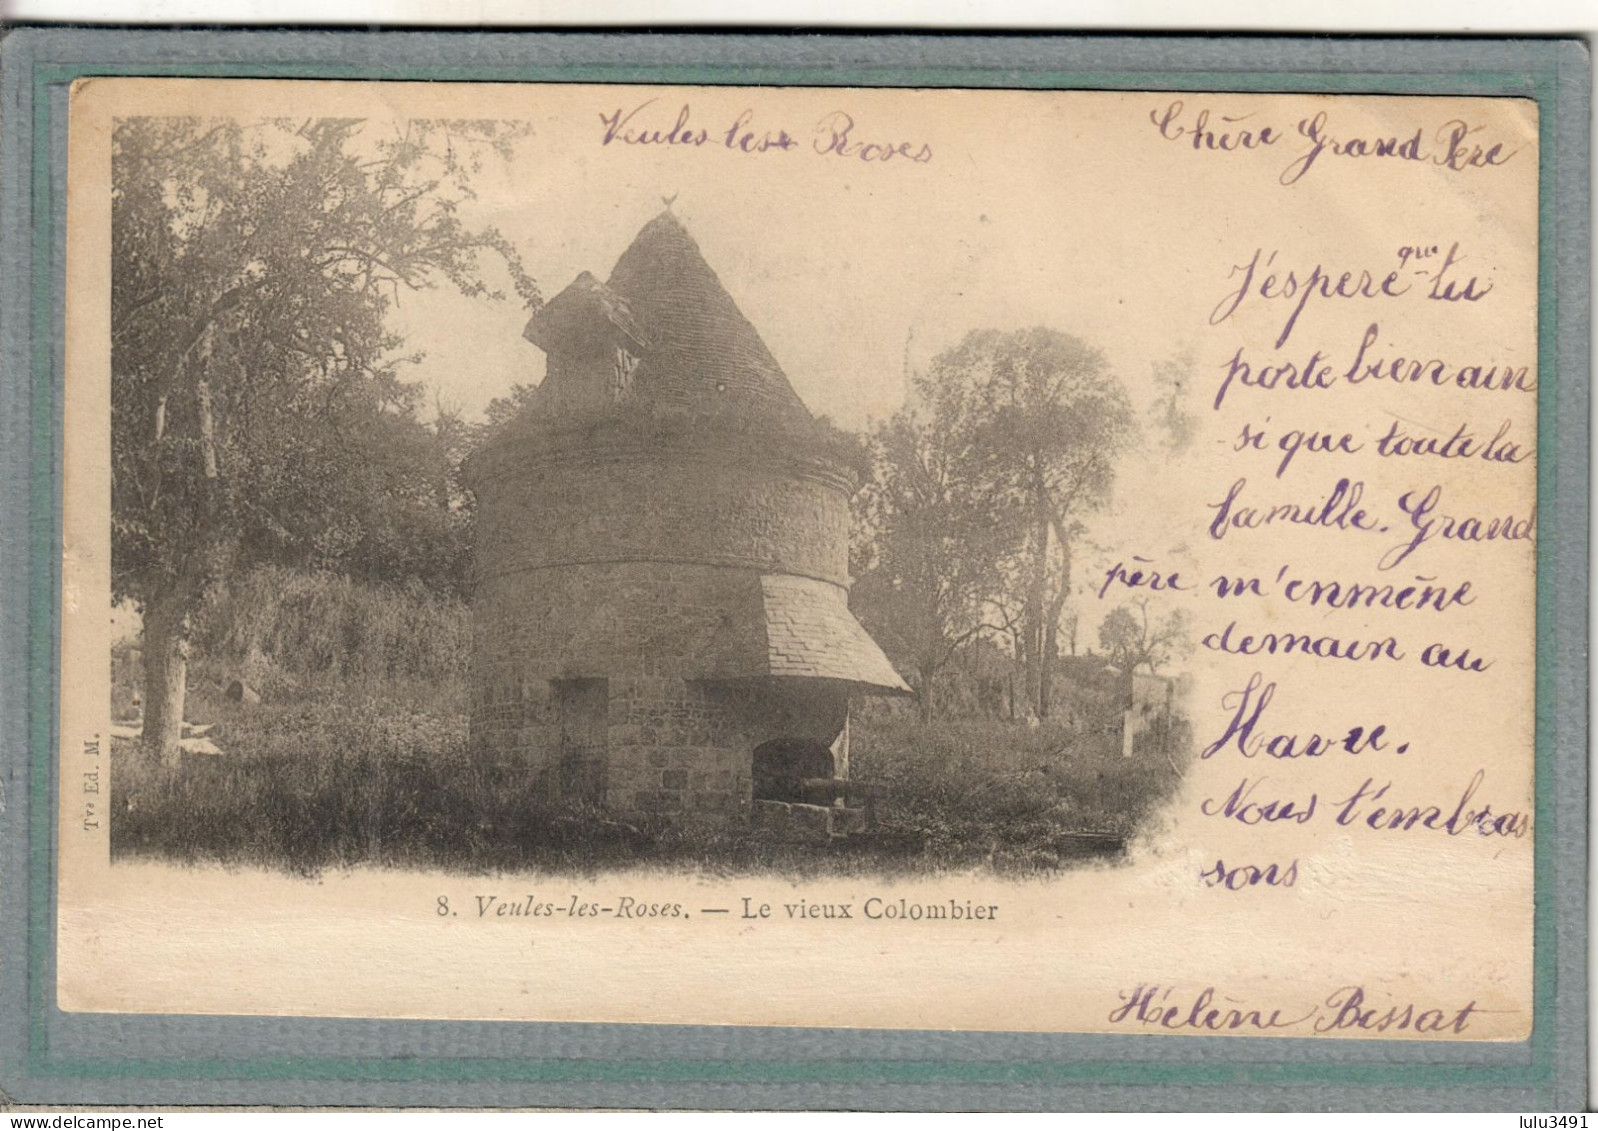 Veules les Roses
Chère Grand Père
J'éspère que tu
porte bien ain
si que toute la
famille. Grand
père m'enmène
demain au
Havre.
Nous t'embras
sons
Hélène Bissat
8. Veules-les-Roses. — Le vieux Colombier
Tvs Ed. M.
lulu3491